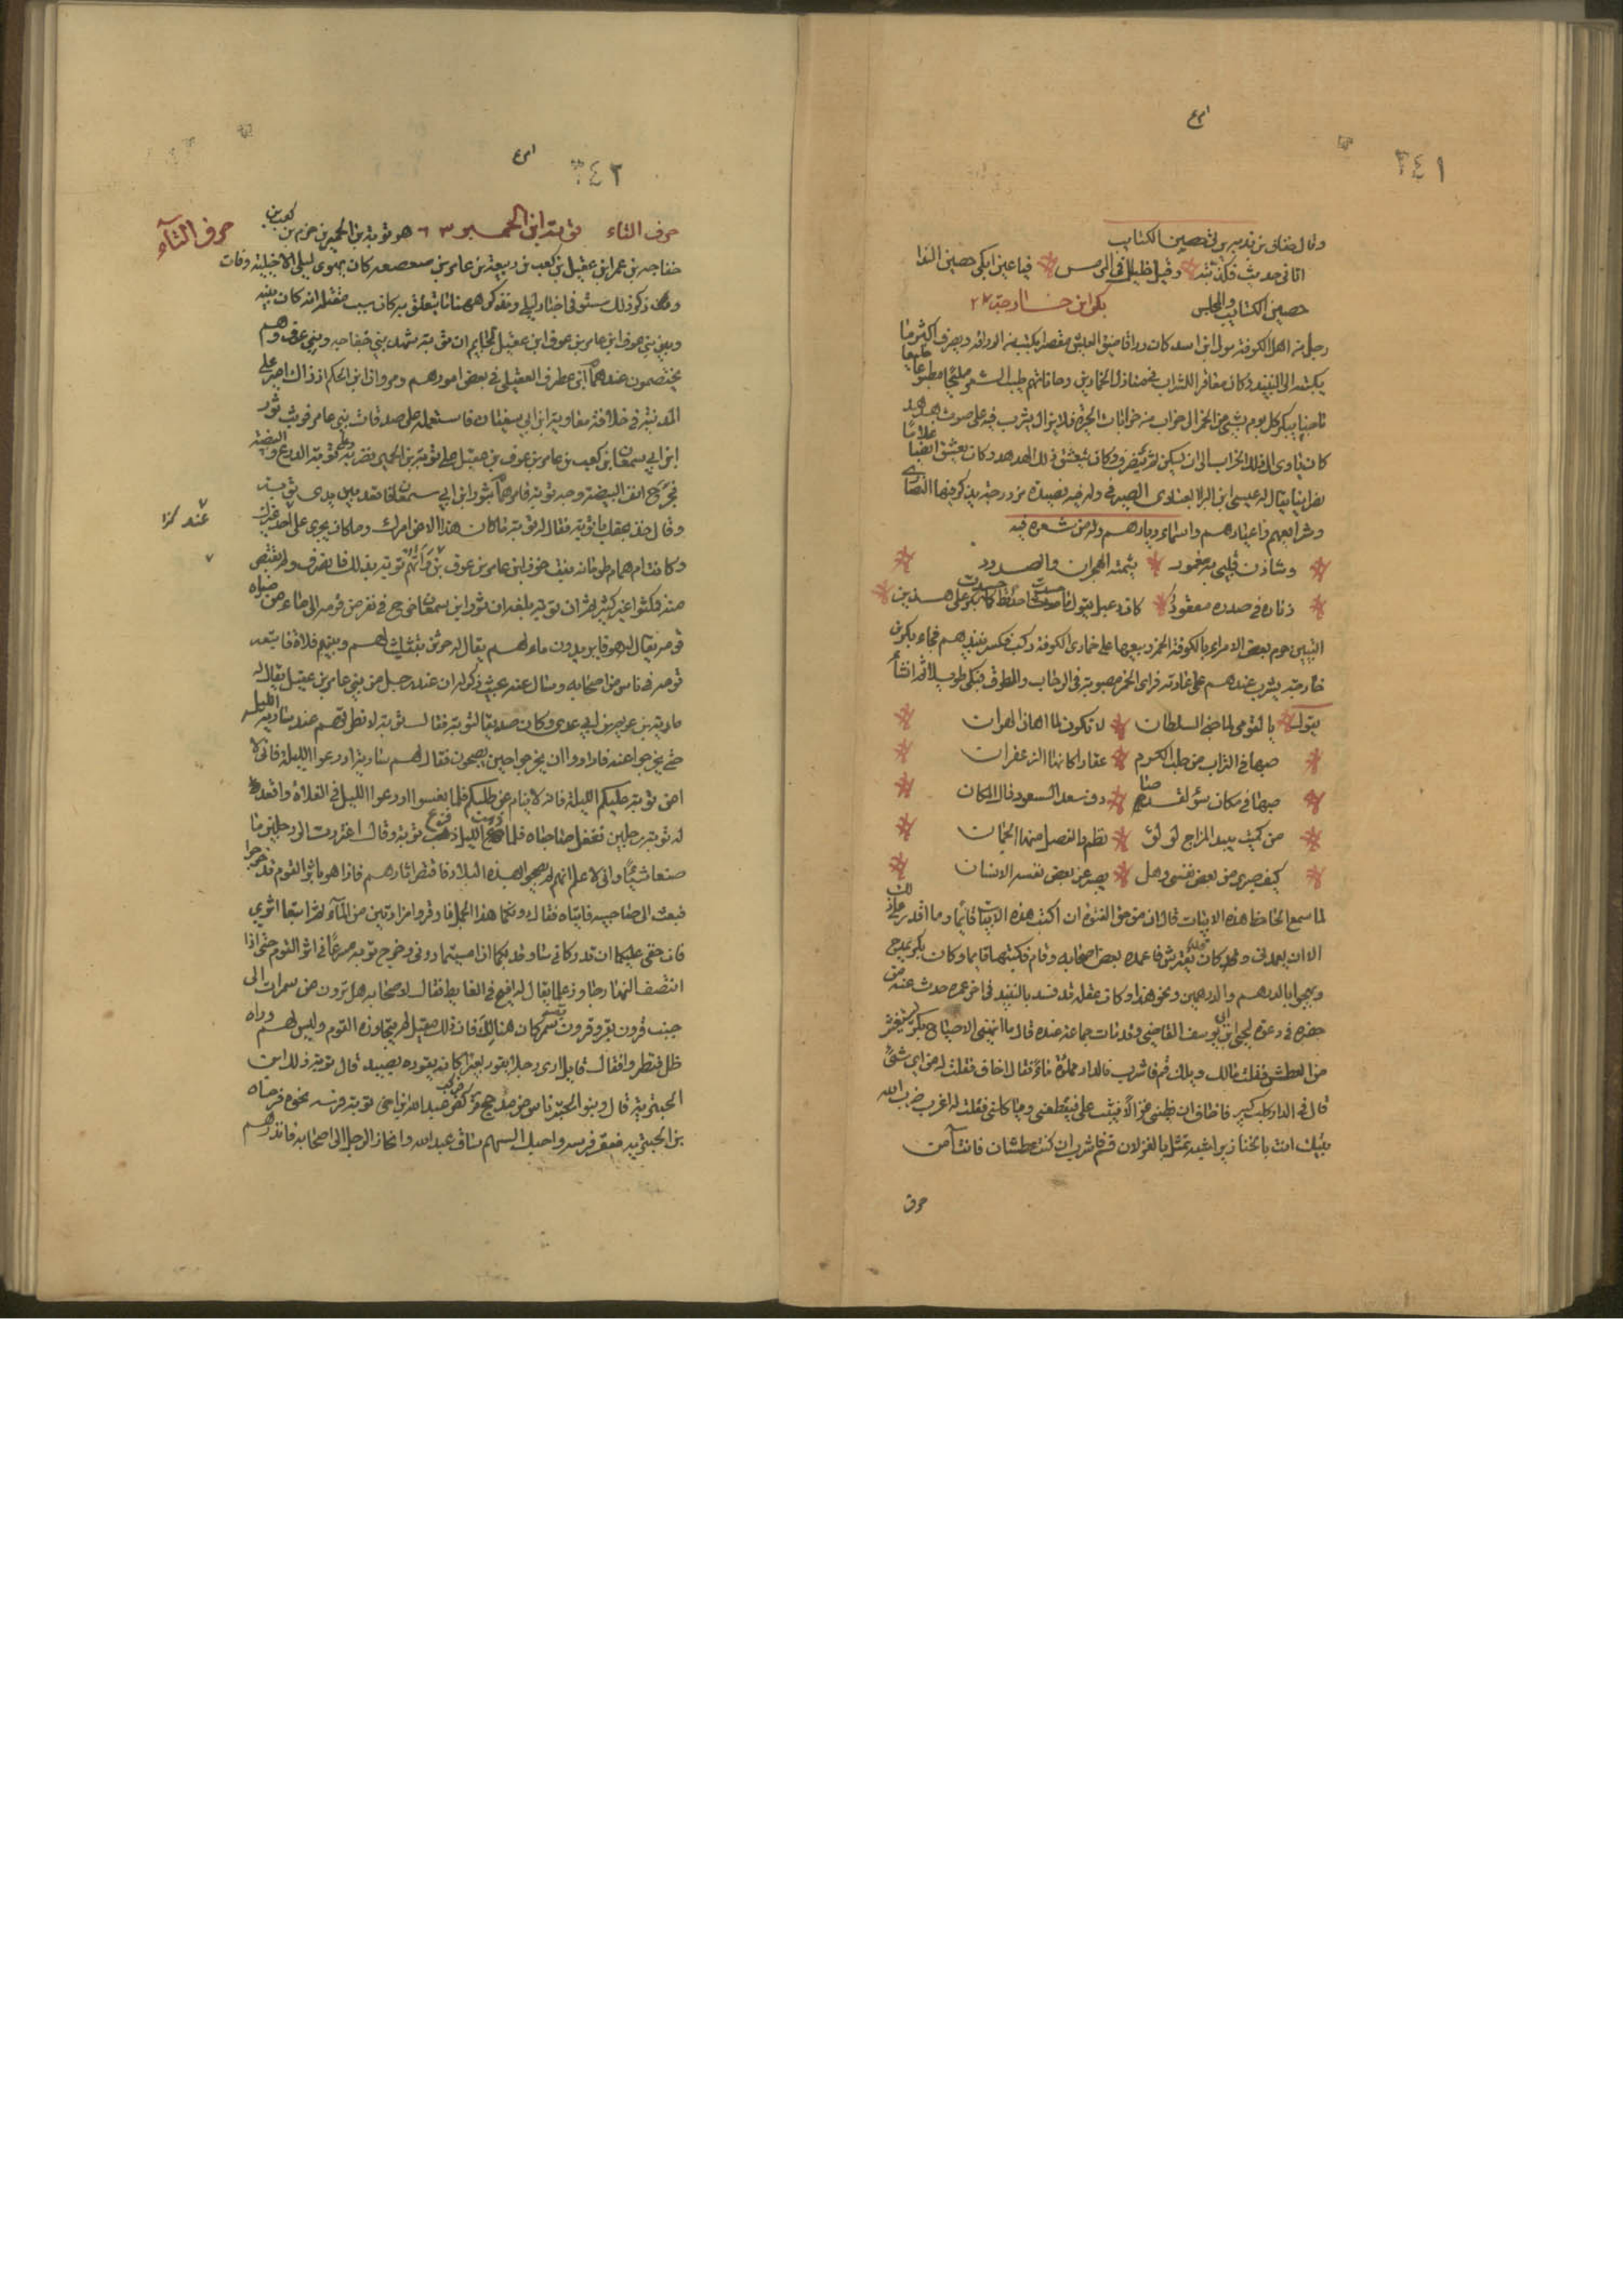 ٣٤١
وقال خفاف بن ندبة يرثي حصين الكتايب
اتاني حديث فكذبته وقيل خليلك في المرمس فيا عين ابكي حصين الندا
حصين الكتايب والمجلس بكر ابن خارجة ٢٧
رجل من اهل الكوفة مولى ابن اسد كان وراقا ضيق العيش مقتصرا يكتسب من الوراقة ويصرف اكثر ما
يكتسبه الى النبيذ وكان معاقرا للشراب في منازل الخمارين وحاناتهم طيب الشعر مليحا مطبوعا خليعا
ناصبا يبكر كل يوم بشي من الخمر الى خراب من خرابات الحيرة فلا يزال يشرب فيه على صوت هدهد
كان ياوى الى ذلك الخراب الى ان يسكر ثم ينصرف وكان يتعشق ذلك الهدهد وكان يعشق ايضا غلاما
نصرانيا يقال له عيسى ابن البرا العبادى الصيرفي وله فيه قصيدة مزدوجة يذكر فيها النصارى
وشرايعهم واعيادهم واسماى ديارهم وله من شعره فيه
وشادن قلبي به معمود شيمته الهجران والصدود
زناره في خصره معقود كان دعبل يقول ما حسدت احدا قط كما حسدت بكرا على هذين
البيتين حرم بعض الامراى بالكوفة الخمر وبيعها على خمارى الكوفة وركب فكسر نبيذهم فجاء بكر بن
خارجة يشرب عندهم على عادته فراى الخمر مصبوبة في الرحاب والطرق فبكى طويلا ثم انشا
يقول يا لقومي لما جنى السلطان لا تكون لما اهان الهوان
صبها في التراب من حلب الكرم عقارا كانها الزعفران
صبها في مكان سؤ لقد صادف سعد السعود ذاك المكان
من كميت يبدى المزاج لها لؤلؤ نظم والفصل منها الجمان
كيف صبرى عن بعض نفسي وهل يصبر عن بعض نفسه الانسان
لما سمع الجاحظ هذه الابيات قال ان من حق الفتوة ان اكتب هذه الابيات قائما وما اقدر على ذلك
الا ان يعمدني وكان تقوس فاعمده بعض اصحابه وقام فكتبها قايما وكان بكر يمدح
ويهجوا بالدرهم والدرهمين ونحو هذا وكان عقله قد فسد بالنبيذ في اخر عمره حدث عنه من
حضره في دعوة ليحيى ابن ابي يوسف القاضي وقد بات جماعة عنده قال ما انبهني الا صياح بكر يستغيث
من العطش فقلت مالك ويلك قم فاشرب فالدار مملوة ماء فقال اخاف فقلت له من اي شئ
قال في الدار كلب كبير فاخاف ان يظنني غزالا فيثب على فيقطعني وياكلني فقلت له اغرب خرب الله
بيتك انت بالخنازير اشبه منك بالغزلان قم فاشرب ان كنت عطشان فانت آمن
حرف
٣٤٢
حرف التآء
حرف التاء توبة ابن الحمير ٦٣ هو توبة بن الحمير بن حزم بن كعب بن
خفاجه بن عمر ابن عقيل بن كعب بن ربيعة بن عامر بن صعصعه كان يهوى ليلى الاخيلية وقات
وقد ذكر ذلك في اخبار ليلى ونذكر هاهنا ما يتعلق به كان سبب مقتله انه كان بينه
وبين بني عوف ابن عامر بن عوف ابن عقيل لحاء ثم ان توبة شهد بني خفاجه وبني عوف وهم
يختصمون عند همام ابن مطرف العقيلي في بعض امورهم ومروان ابن الحكم اذ ذاك امير على
المدينة في خلافة معاوية ابن ابي سفيان فاستعمله على صدقات بني عامر فوثب ثور
ابن ابي سمعان ابن كعب بن عامر بن عوف بن عقيل على توبة بن الحمير فضربه وعلى توبة الدرع والبيضة
فجرح انف البيضة وجه توبة فامر همام بثور ابن ابي سمعان فاقعد بين يدى توبة
وقال خذ حقك يا توبة فقال له توبة ما كان هذا الا عن امرك وما كان يجرى على احد عندك غيرك
عند كذا
وكانت ام همام طوبانة بنت عوف ابن عامر بن عوف بن فاتهمه توبة بذلك فانصرف ولم يقتص
منه فمكثوا غير كثير ثم ان توبة بلغه ان ثور ابن سمعان خرج في نفر من قومه الى ماء من مياه
قومه يقال له هو قا يريدون ماء لهم يقال له حرش بتثليث لهم وبينهم فلاة فاتبعه
توبة في ناس من اصحابه وسال عنه فذكر له ان عند رجل من بني عامر بن عقيل يقال له
سارية بن عويمر بن ابي عدى وكان صديقا لتوبة فقال توبة لا نطرقهم عند سارية الليلة
حتى يخرجوا عنه فارادوا ان يخرجوا حين يصبحون فقال لهم سارية ادرعوا الليلة فاني لا
امن توبة عليكم الليلة فانه لا ينام عن طلبكم فلما تعشوا ادرعوا الليل في الفلاة واقعد
له توبة رجلين فغفل صاحباه فلما ذهب الليل فزع توبة وقال اغتررت الى رجلين ما
صنعا شيا واني لاعلم انهم لم يصبحوا بهذه البلاد فاقتص اثارهم فاذا هو باثر القوم قد خرجوا
فبعث الى صاحبيه فاتياه فقال دونكما هذا الجمل فاوقروا مزادتين من المآء ثم اتبعا اثرى
فان خفى عليكما ان تدركاني ساوقد لكما اذا امسيتما دوني وخرج توبة مسرعا في اثر القوم حتى اذا
انتصف النهار جاوز علما يقال له افيح في الغايط فقال لاصحابه هل ترون من سمرات الى
جنب قرون بقر وقرون بقر مكان هنالك فان ذلك مقيل لم يتجاوزه القوم وليس لهم وراه
ظل فنظروا فقال قايل ارى رجلا يقود بعيرا كانه يقوده يصيد قال توبة ذلك ابن
الحبترية قال وبنو الحبتر ناس من مذحج فركض عبد الله اخي توبة فرسه نحوه فرماه
بن الحبترية فعقر فرسه واختل السهم ساق عبد الله وانحاز الرجل الى اصحابه فانذرهم